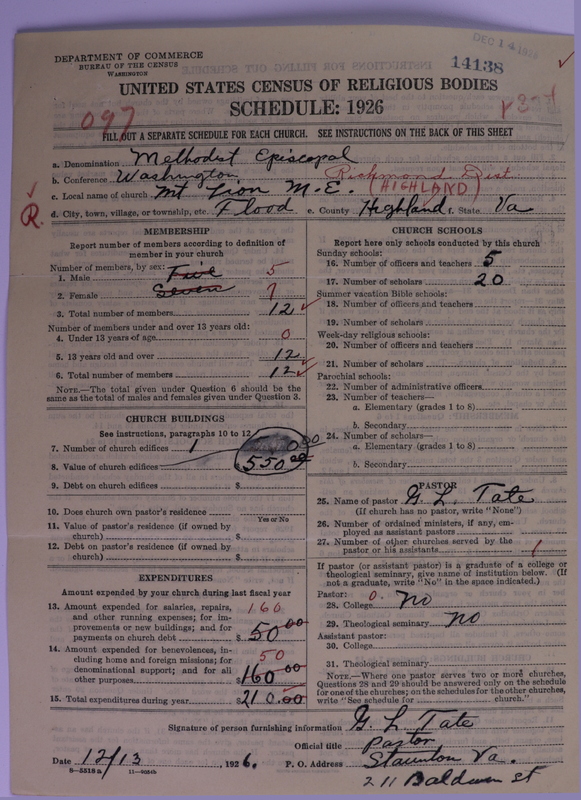 DEC 14
14138
DEPARTMENT OF COMMERCE
BUREAU OF THE CENSUS
WASHINGTON
UNITED STATES CENSUS OF RELIGIOUS BODIES
SCHEDULE: 1926
097
FILL OUT A SEPARATE SCHEDULE FOR EACH CHURCH. SEE INSTRUCTIONS ON THE BACK OF THIS SHEET
a. Denomination Methodist Episcopal
b. Conference Washington Richmond Dist.
c. Local name of church Mt Zion M.E. (HIGHLAND)
R. d. City, town, village, or township, etc. Flood e. County Highland f. State Va
MEMBERSHIP
Report number of members according to definition of
member in your church
Number of members, by sex:
1. Male Five 5
2. Female Seven 7
3. Total number of members 12
Number of members under and over 13 years old:
4. Under 13 years of age 0
5. 13 years old and over 12
6. Total number of members 12
NOTE.—The total given under Question 6 should be
same as the total of males and females given under Question 3.
CHURCH BUILDINGS
See instructions, paragraphs 10 to 12
7. Number of church edifices 1
8. Value of church edifices $550 00
9. Debt on church edifices $
10. Does church own pastor's residence
Yes or No
11. Value of pastor's residence (if owned by
church) $
12. Debt on pastor's residence (if owned by
church) $
EXPENDITURES
Amount expended by your church during last fiscal year
13. Amount expended for salaries, repairs, 160
and other running expenses; for im-
provements or new buildings; and for
payments on church debt $50 00
14. Amount expended for benevolences, in- 50
cluding home and foreign missions; for
denominational support; and for all
other purposes $160 00
15. Total expenditures during year $210.00
CHURCH SCHOOLS
Report here only schools conducted by this church
Sunday schools:
16. Number of officers and teachers 5
17. Number of scholars 20
Summer vacation Bible schools:
18. Number of officers and teachers
19. Number of scholars
Week-day religious schools:
20. Number of officers and teachers
21. Number of scholars
Parochial schools:
22. Number of administrative officers
23. Number of teachers—
a. Elementary (grades 1 to 8)
b. Secondary
24. Number of scholars—
a. Elementary (grades 1 to 8)
b. Secondary
PASTOR
25. Name of pastor G. L. Tate
(If church has no pastor, write "None")
26. Number of ordained ministers, if any, em-
ployed as assistant pastors
27. Number of other churches served by the
pastor or his assistants 1
If pastor (or assistant pastor) is a graduate of a college or
theological seminary, give name of institution below. (If
not a graduate, write "No" in the space indicated.)
Pastor: 0.
28. College No
29. Theological seminary No
Assistant pastor:
30. College
31. Theological seminary
NOTE.—Where one pastor serves two or more churches,
Questions 28 and 29 should be answered only on the schedule
for one of the churches; on the schedules for the other churches,
write "See schedule for church."
Signature of person furnishing information G. L. Tate
Official title Pastor
Date 12/13, 1926. P. O. Address Staunton Va.
8—5518a 11—9084b
211 Baldwin St